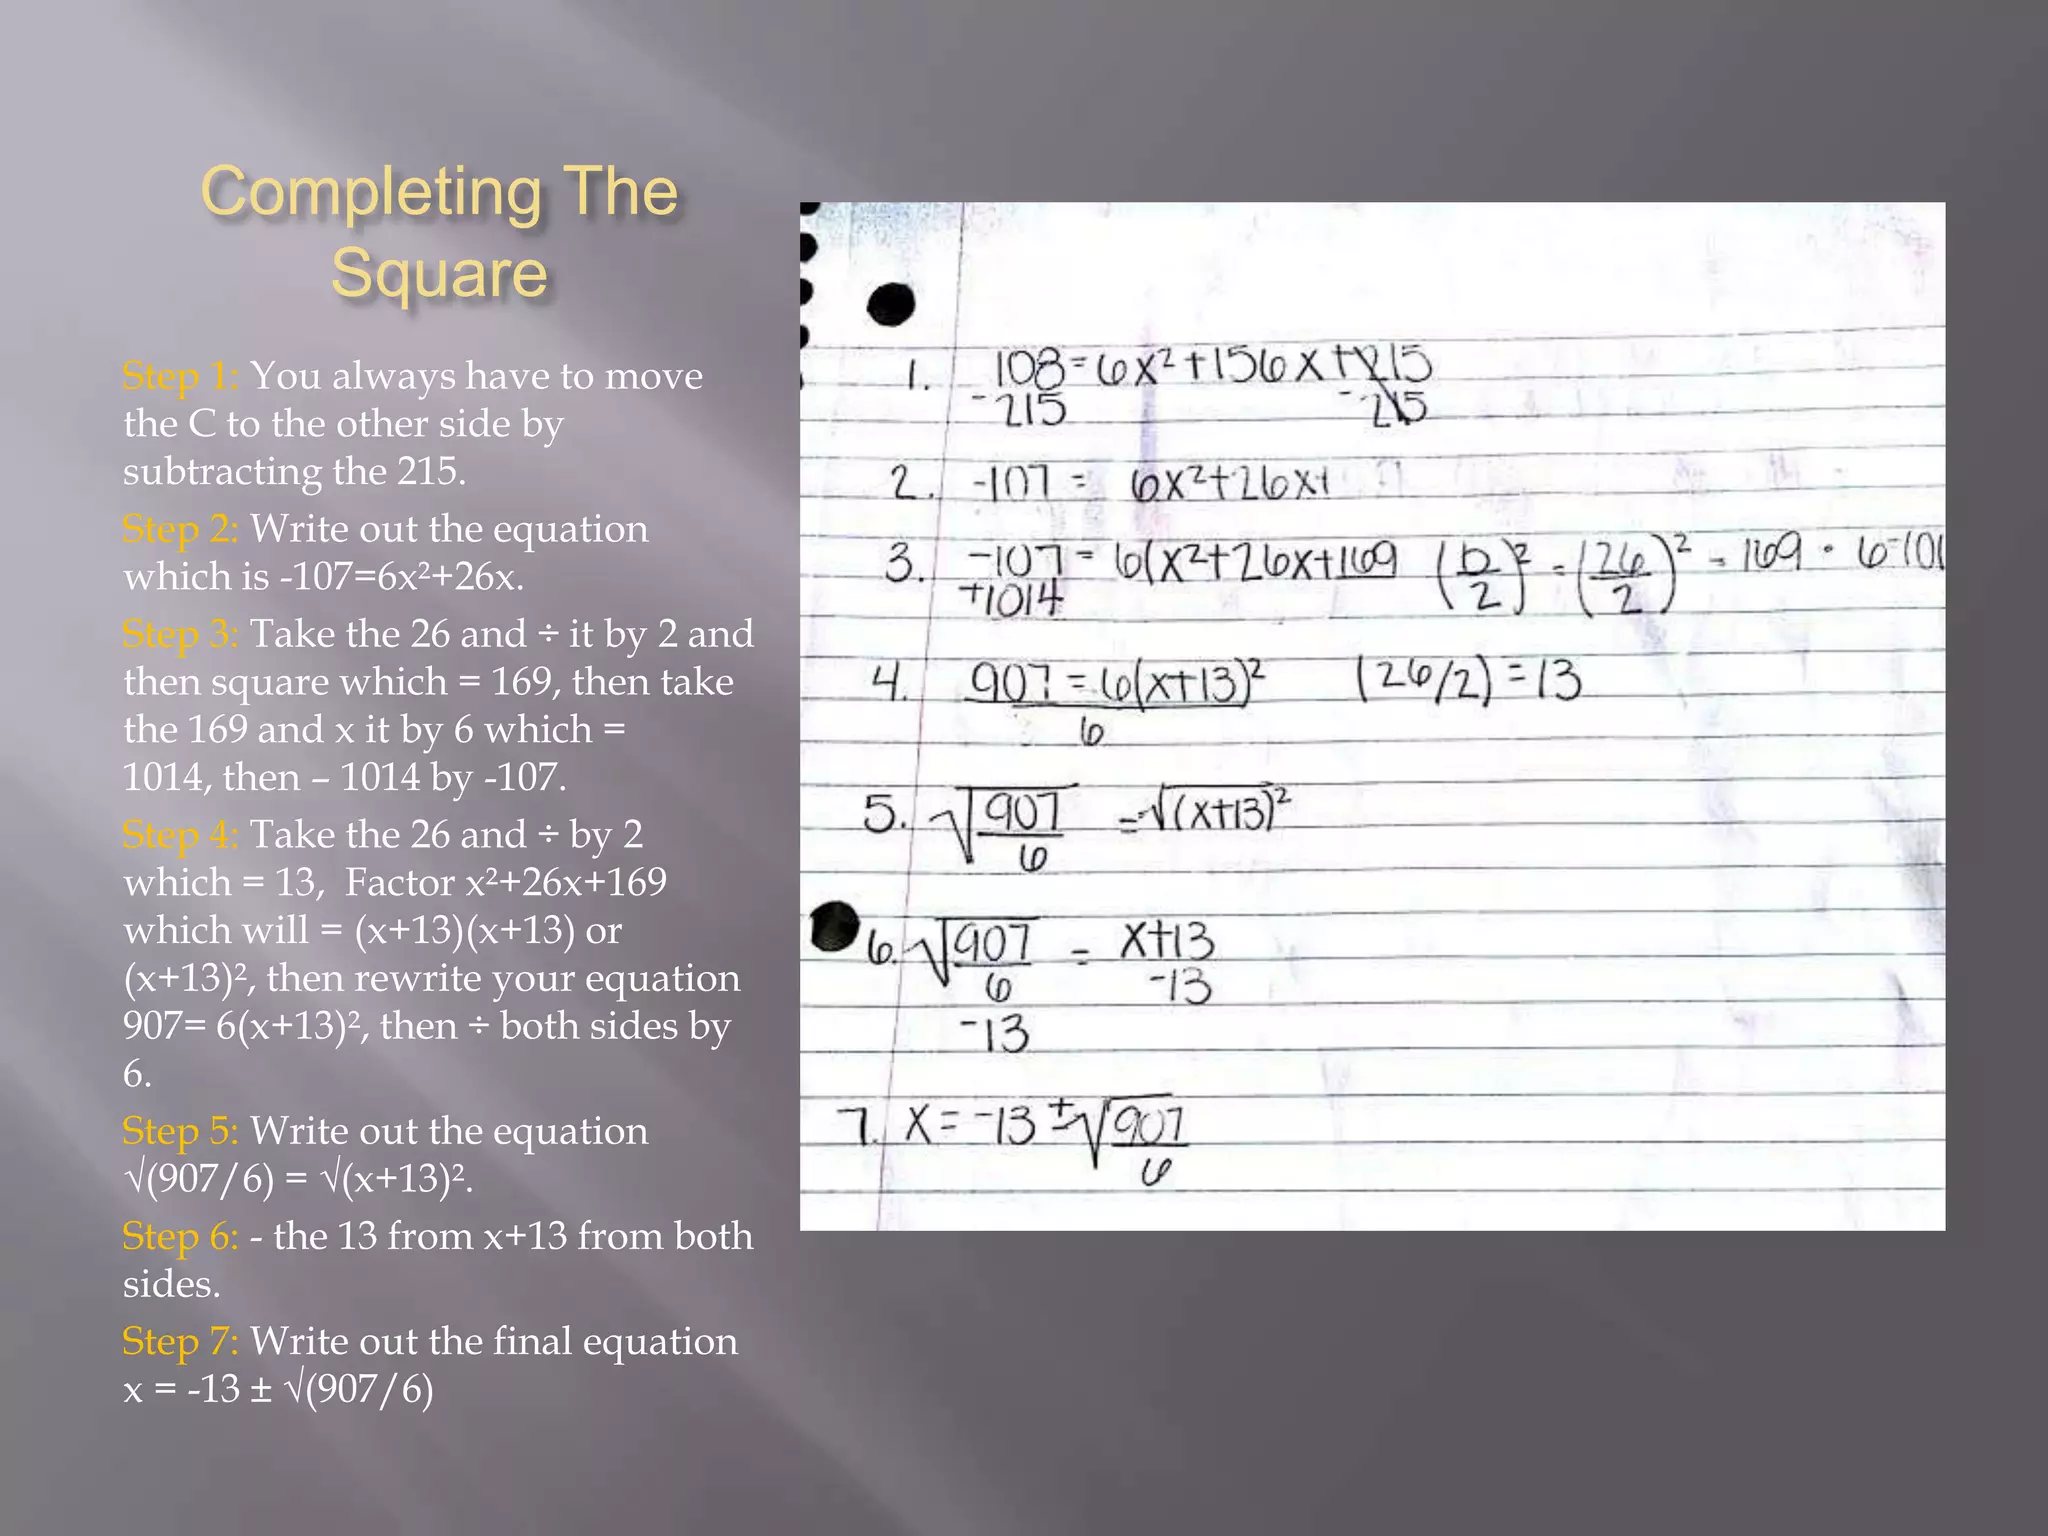 Completing The
Square
Step 1: You always have to move
the C to the other side by
subtracting the 215.
Step 2: Write out the equation
which is -107=6x²+26x.
Step 3: Take the 26 and ÷ it by 2 and
then square which = 169, then take
the 169 and x it by 6 which =
1014, then – 1014 by -107.
Step 4: Take the 26 and ÷ by 2
which = 13, Factor x²+26x+169
which will = (x+13)(x+13) or
(x+13)², then rewrite your equation
907= 6(x+13)², then ÷ both sides by
6.
Step 5: Write out the equation
√(907/6) = √(x+13)².
Step 6: - the 13 from x+13 from both
sides.
Step 7: Write out the final equation
x = -13 ± √(907/6)
1. 108=6x²+156x+215
-215 -215
2. -107 = 6x²+26x+
3. -107 = 6(x²+26x+169 (b/2)² = (26/2)² = 169 · 6=101
+1014
4. 907 = 6(x+13)² (26/2)=13
6
5. √907/6 = √(x+13)²
6. √907/6 = x+13
-13 -13
7. x = -13 ± √907/6